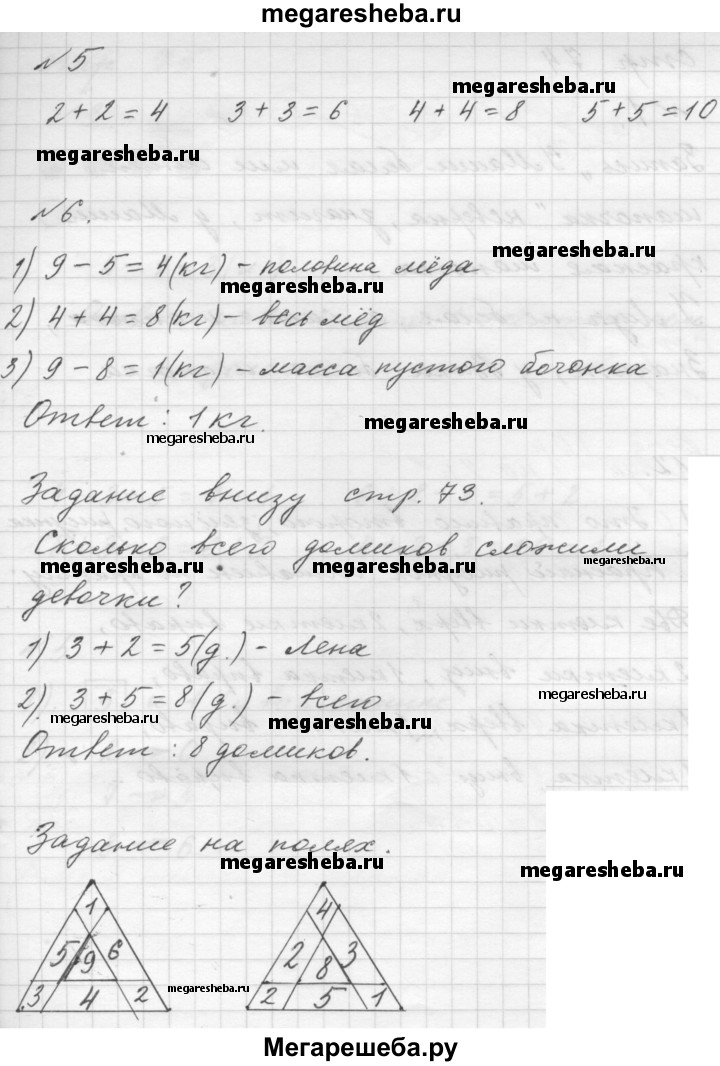 megaresheba.ru
№5
2+2=4 3+3=6 4+4=8 5+5=10
megaresheba.ru
megaresheba.ru
№6.
megaresheba.ru
1) 9-5=4(кг) - половина мёда
megaresheba.ru
2) 4+4=8(кг) - весь мёд
3) 9-8=1(кг) - масса пустого бочонка
Ответ: 1 кг.
megaresheba.ru
megaresheba.ru
Задание внизу стр. 73.
Сколько всего домиков сложили
megaresheba.ru
megaresheba.ru
megaresheba.ru
девочки?
1) 3+2=5(д.) - Лена
2) 3+5=8(д.) - всего
megaresheba.ru
megaresheba.ru
megaresheba.ru
Ответ: 8 домиков.
Задание на полях.
megaresheba.ru
megaresheba.ru
1 4
5 9 6 2 8 3
3 4 2 2 5 1
megaresheba.ru
megaresheba.ru
Мегарешеба.ру